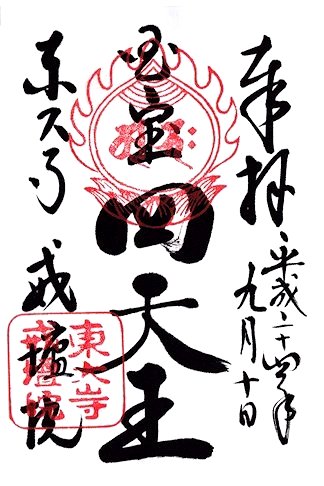 奉拝
平成二十四年
九月十日
国宝
四天王
東大寺 戒壇院
東大寺
戒壇院